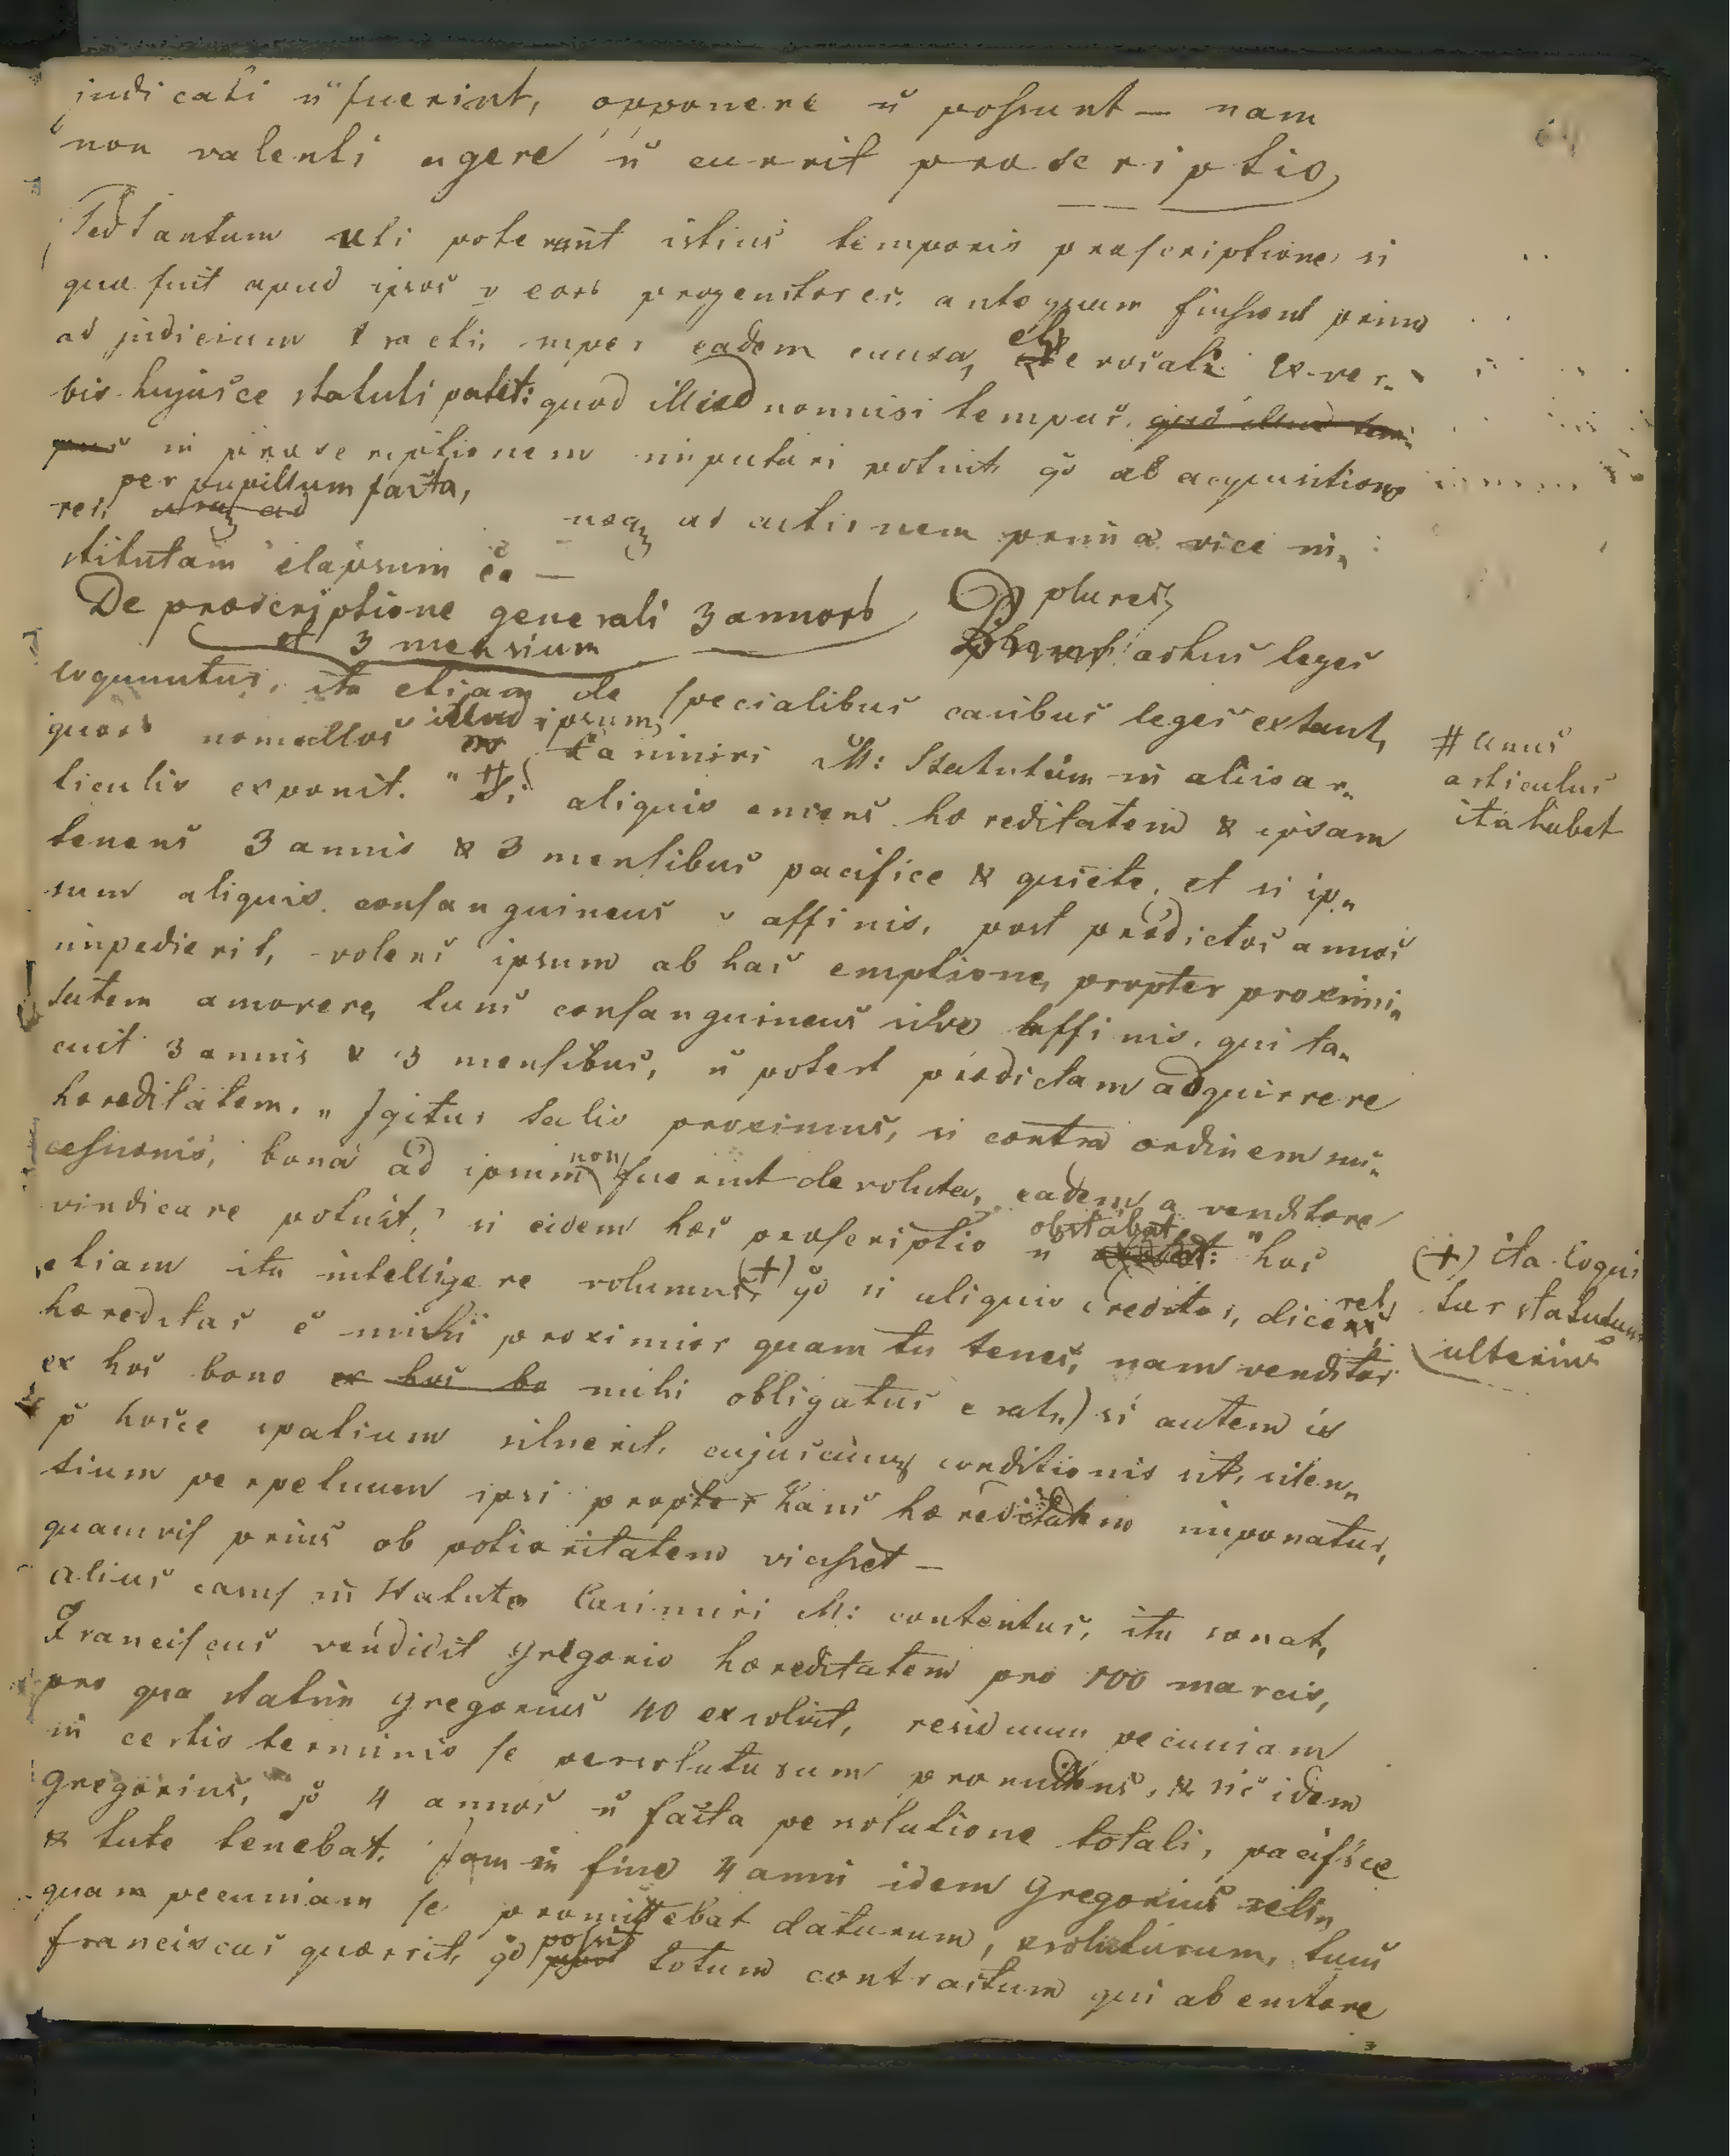 judicati ū fuerint, opponere ū possunt — nam
non valenti agere ū currit praescriptio,
Sed tantum uti poterant istius temporis praescriptione, si
quae fuit apud ipsos v eorb progenitores, antequam fuissent primo
ad judicium tracti, super eadem causa, Ex ver-
bis hujusce statuti patet: quod illud nonnisi tempus, quod illud tem-
pus in praescriptionem imputari potuit, qd ab acquisitione
per pupillum facta,
rei, usq ad
usq ad actionem prima vice in-
stitutam elapsum ēe —
De praescriptione generali 3 annorb
et 3 mensium
plures
actus leges
loquuntur, ita etiam de specialibus casibus leges extant,
quorb nonnullos illud ipsum Casimiri M: Statutum in aliis ar-
ticulis exponit. "# Si aliquis emens haereditatem & ipsam
# unus
articulus
ita habet
tenens 3 annis & 3 mensibus pacifice & quiete, et si ip-
sum aliquis consanguineus v affinis, post praedictos annos
impedierit, volens ipsum ab hac emptione, propter proximi-
tatem amovere, tunc consanguineus sive affinis, qui ta-
cuit 3 annis & 3 mensibus, ū potest praedictam adquirrere
haereditatem." Igitur talis proximus, si contra ordinem suc-
cessionis, bona ad ipsum non fuerint devoluta, eadem a venditore
vindicare potuit, si eidem haec praescriptio ū obstabat: "hoc
etiam ita intelligere volumus, (+) qd si aliquis creditor, dicens, vel
(+) ita loqui
tur statutum
ulterius
haereditas ē mihi proximior quam tu tenes, nam venditor
ex hoc bono ex hoc bo mihi obligatus erat,) si autem is
p hocce spatium siluerit, cujuscunq conditionis sit, silen-
tium perpetuum ipsi propter hanc haereditatem imponatur,
quamvis prius ob potioritatem vicisset —
Alius casus in Statuto Casimiri M: contentus, ita sonat,
Franciscus vendidit Gregorio haereditatem pro 100 marcis,
pro qua statim Gregorius 40 exsolvit, residuam pecuniam
in certis terminis se persoluturum promittens, & sic idem
Gregorius, p 4 annos ū facta persolutione totali, pacifice
& tute tenebat. Jam in fine 4 anni idem Gregorius reli-
quam pecuniam se promittebat daturum, soluturum, tunc
Franciscus quaerit, qd possit totum contractum qui ab emtore